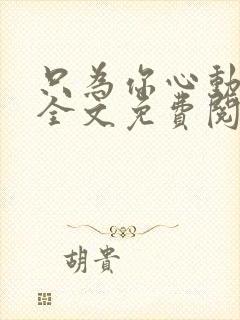 只為你心動
全文免費閱
胡貴